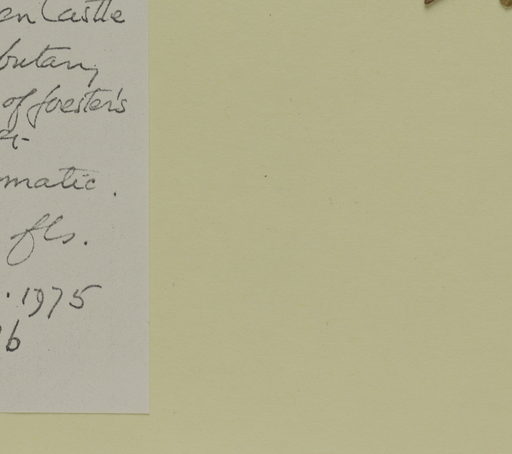 en Castle
butary
of foester's
matic.
fls.
. 1975
6